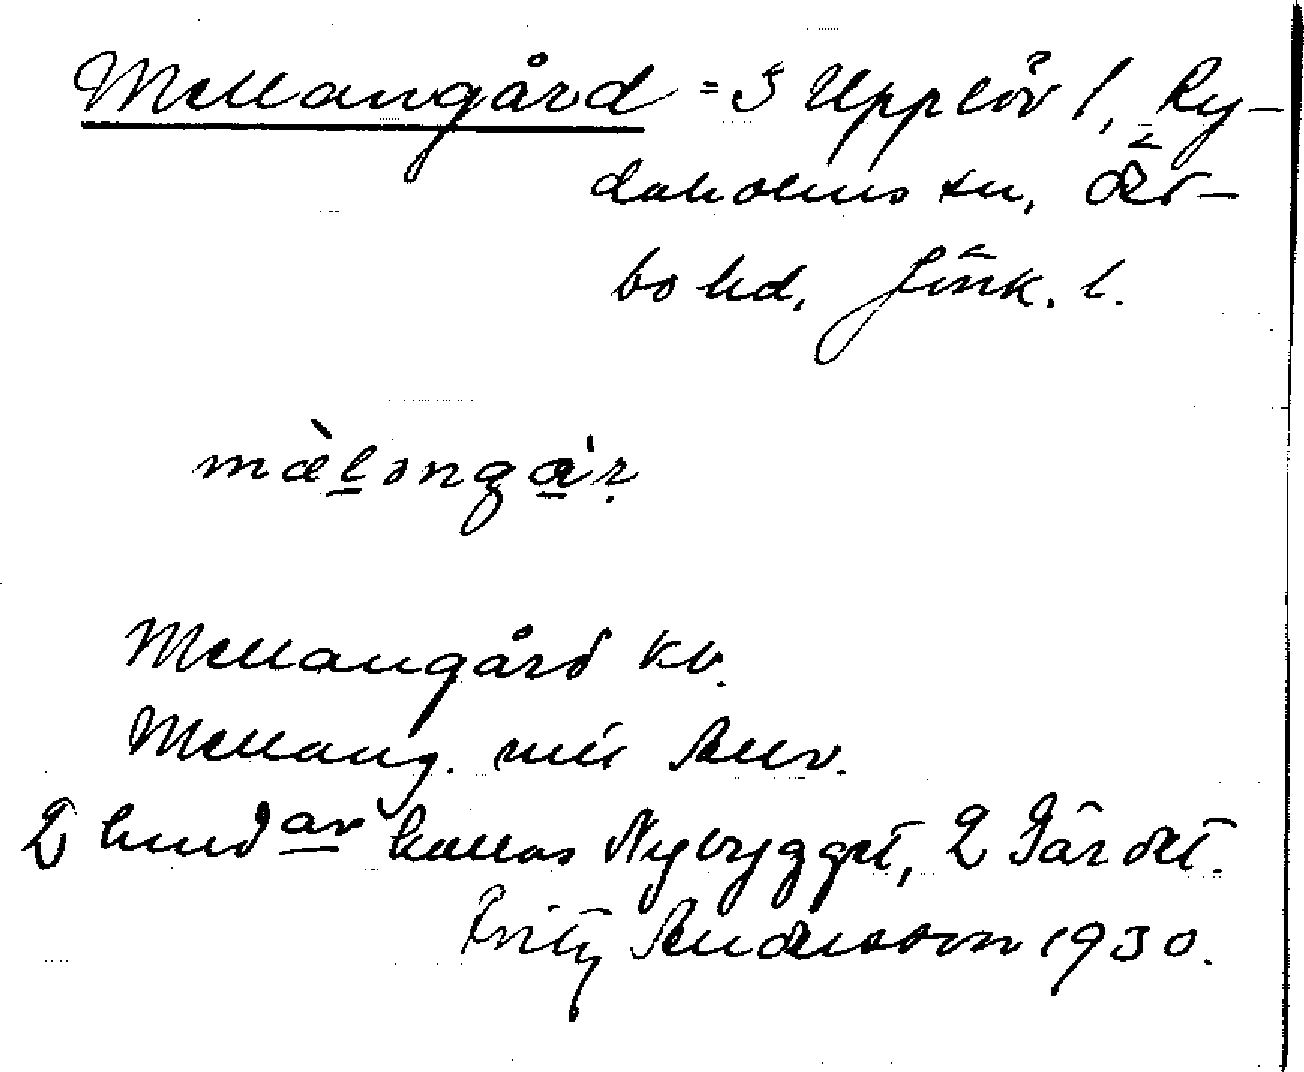 Mellangård = S Upplöv 1, Ry-
daholms sn, Öst-
bo hd, Jönk. l.
mæ̀lənga̍r
Mellangård kv.
Mellang.
2 lmd ar kallas Nybygget, 2 Gärdet.
Fritz Andersson 1930.